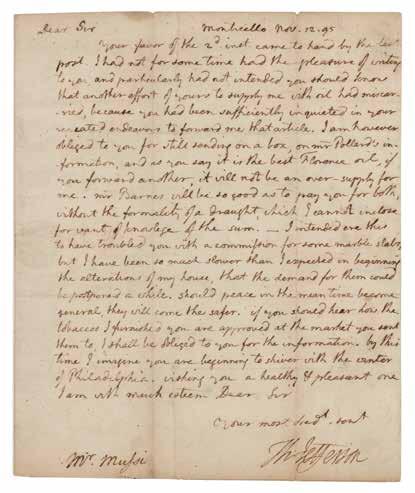 Dear Sir Monticello Nov. 12. 95
Your favor of the 2d. inst. came to hand by the last
post. I had not for some time had the pleasure of writing
to you and particularly had not intended you should know
that another effort of yours to supply me with oil had miscar-
ried, because you had been sufficiently inquieted in your
repeated endeavors to forward me that article. I am however
obliged to you for still sending on a box, on mr Pollard's in-
formation, and as you say it is the best Florence oil, if
you forward another, it will not be an over-supply for
me. mr Barnes will be so good as to pay you for both,
without the formality of a draught, which I cannot inclose
for want of knowlege of the sum. — I intended ere this
to have troubled you with a commission for some marble slabs,
but I have been so much slower than I expected in beginning
the alterations of my house, that the demand for them could
be postponed a while. should peace in the mean time become
general, they will come the safer. if you should hear how the
tobaccos I furnished you are approved at the market you sent
them to, I shall be obliged to you for the information. by this
time I imagine you are beginning to shiver with the winter
of Philadelphia. wishing you a healthy & pleasant one
I am with much esteem Dear Sir
Your most obedt. servt
Th: Jefferson
Mr. Mussi